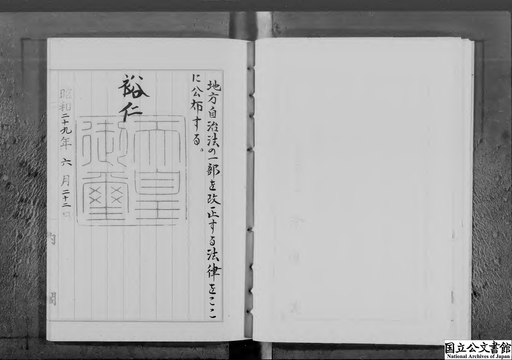 地方自治法の一部を改正する法律をここ
に公布する。
裕仁
天皇
御璽
昭和二十九年六月二十二日
内閣
国立公文書館
National Archives of Japan